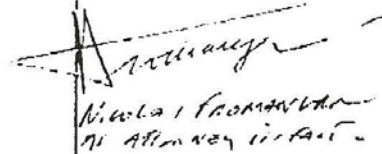 NICOLAS FROMANGER
AS ATTORNEY IN FACT.